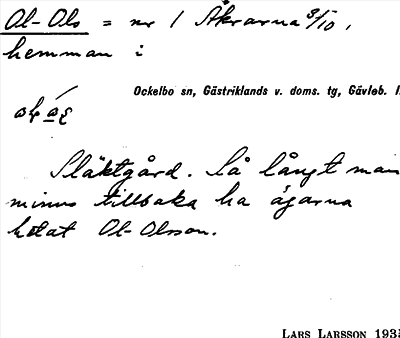 Ol-Ols = nr 1 Åkrarna 3/10,
hemman i
Ockelbo sn, Gästriklands v. doms. tg, Gävleb. l.
Släktgård. Så långt man
minns tillbaka ha ägarna
hetat Ol-Olsson.
LARS LARSSON 1935